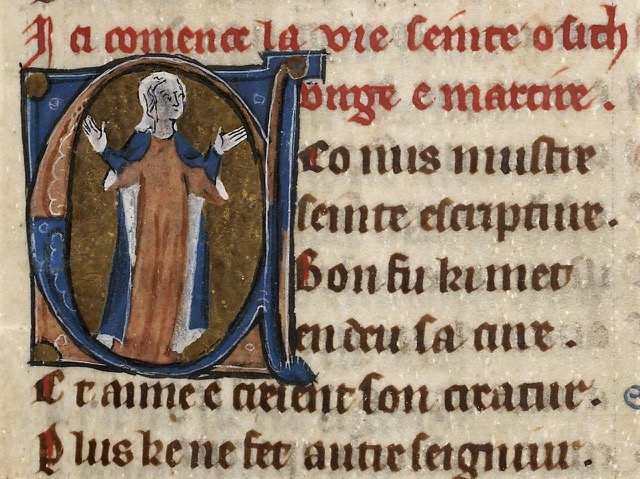 I ci comence la vie seinte osith
virge e martire .
Co nus mustre
seinte escripture .
Bon fu ki met
en deu sa cure .
E t aime e crient son creatur .
P lus ke ne fet autre seignur .